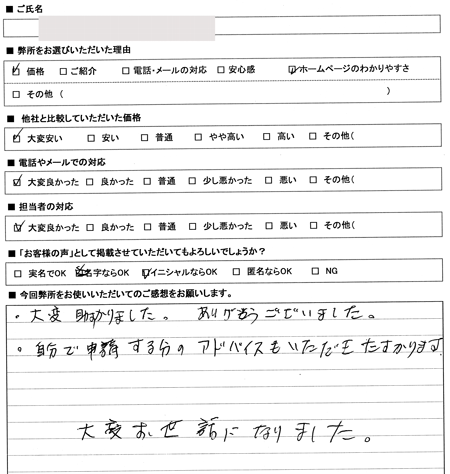 ■ ご氏名
■ 弊所をお選びいただいた理由
☑ 価格 □ ご紹介 □ 電話・メールの対応 □ 安心感 ☑ ホームページのわかりやすさ
□ その他 ( )
■ 他社と比較していただいた価格
☑ 大変安い □ 安い □ 普通 □ やや高い □ 高い □ その他(
■ 電話やメールでの対応
☑ 大変良かった □ 良かった □ 普通 □ 少し悪かった □ 悪い □ その他(
■ 担当者の対応
☑ 大変良かった □ 良かった □ 普通 □ 少し悪かった □ 悪い □ その他(
■ 「お客様の声」として掲載させていただいてもよろしいでしょうか？
□ 実名でOK 名字ならOK ☑ イニシャルならOK □ 匿名ならOK □ NG
■ 今回弊所をお使いいただいてのご感想をお願いします。
・大変助かりました。ありがとうございました。
・自分で申請する分のアドバイスもいただきたすかります
大変お世話になりました。